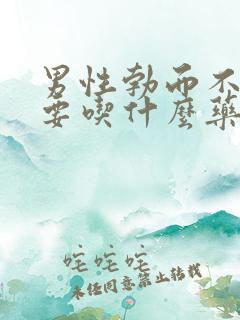 男性勃而不
要吃什麼藥
咤咤咤
未经同意禁止转载